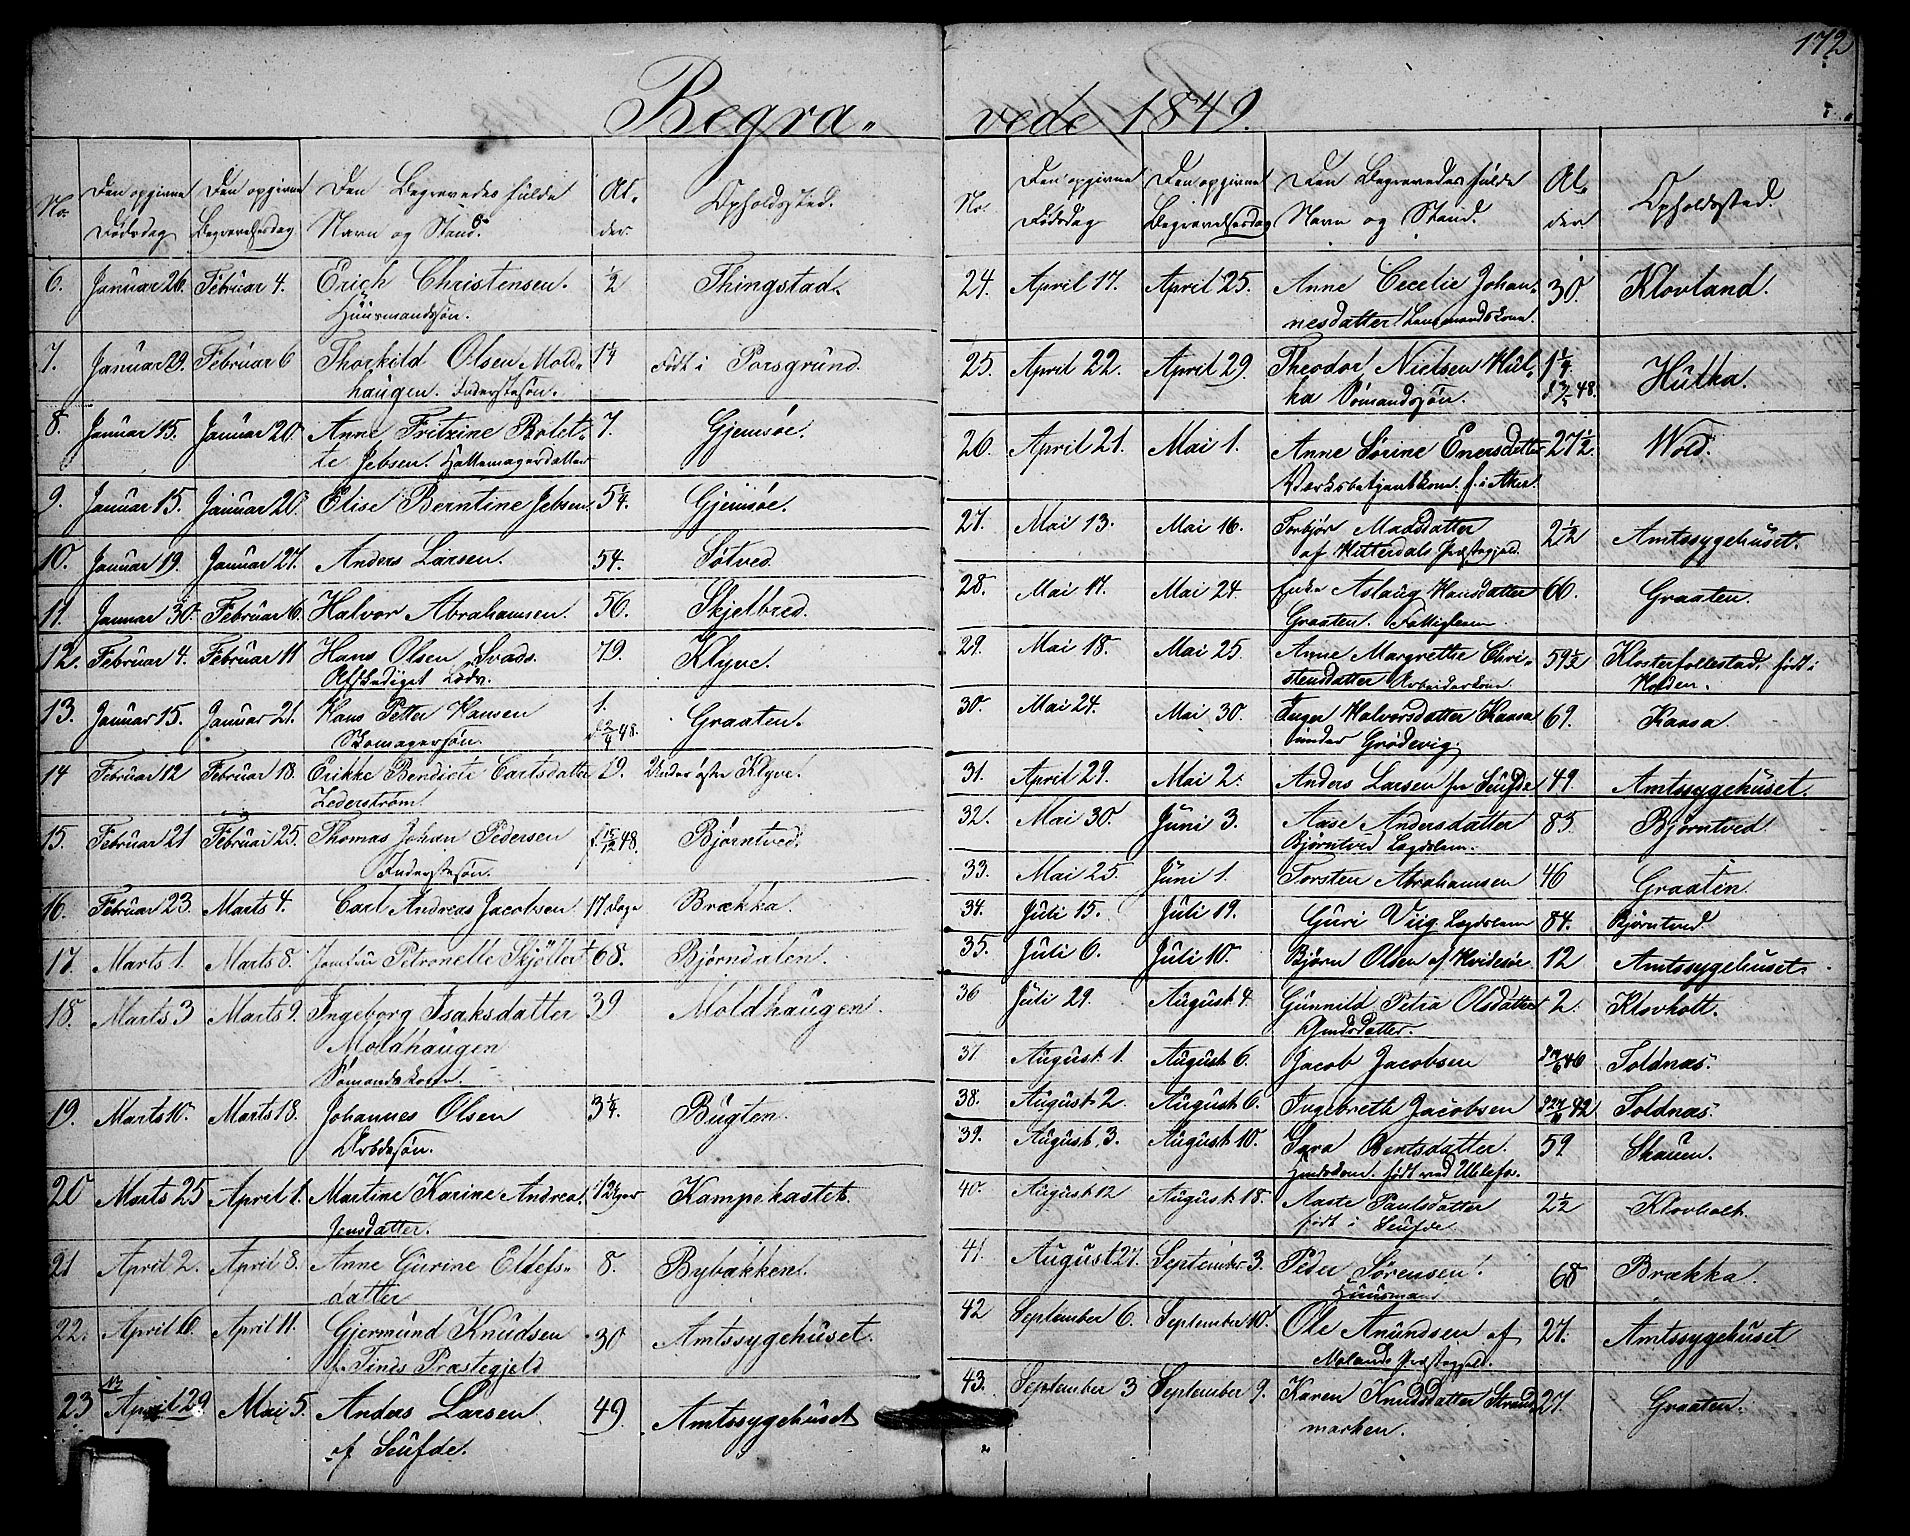 172
Begra- vede 1849.
No. Den opgivne Dødsdag Den opgivne Begravelsesdag Den Begravedes fulde Navn og Stand. Al- der. Opholdssted.
6. Januar 26. Februar 4. Erich Christensen. 1/2 Thingstad.
Huusmandssøn.
7. Januar 29. Februar 6 Thorkild Olsen Mold- 1 1/4 Født i Porsgrund.
haugen. Inderstesøn.
8. Januar 15. Januar 20. Anne Fritzine Bolet- 7. Gjemsøe.
te Jebsen. Hattemagerdatter
9. Januar 15. Januar 20. Elise Berntine Jebsen 5 1/4. Gjemsøe.
10. Januar 19. Januar 27. Anders Larsen. 54. Søtved.
11. Januar 30. Februar 6. Halvor Abrahamsen. 56. Skjelbred.
12. Februar 4. Februar 11 Hans Olsen Svads. 79. Klyve.
Afskediget
13. Januar 15. Januar 21. Hans Petter Hansen 1. Graaten.
Skomagersøn. 48.
14 Februar 12 Februar 18. Erikke Bendicte Carlsdatter 19. Under østre Klyve.
Lederstrøm.
15. Februar 21 Februar 25. Thomas Johan Pedersen f. 15/12 48. Bjørntved.
Inderstesøn.
16. Februar 23. Marts 4. Carl Andreas Jacobsen 17 Dage Brækka.
17. Marts 1. Marts 8. Jomfru Petronelle Skjølter 68. Bjørndalen.
18. Marts 3 Marts 9. Ingeborg Isaksdatter 39 Moldhaugen.
Moldhaugen
Sømandskone.
19. Marts 10. Marts 18. Johannes Olsen 3 1/4. Bugten.
20 Marts 25 April 1. Martine Karine Andrea Kampekastet.
Jensdatter.
21 April 2. April 8. Anne Gurine Ellefs- 8. Bybakken.
datter
22. April 6. April 11. Gjermund Knudsen 30 Amtssygehuset.
f. Tinds Præstegjeld
23 April 29 Mai 5. Anders Larsen. 49. Amtssygehuset
af Seufde.
No. Den opgivne Dødsdag Den opgivne Begravelsesdag Den Begravedes fulde Navn og Stand. Al- der. Opholdssted.
24. April 17. April 25. Anne Cecelie Johan- 30. Klovland.
nesdatter
25. April 22. April 29. Theodor Nielsen Hut- 1 1/4 Hutka.
ka Sømandssøn. 48.
26. April 21. Mai 1. Anne Sørine Enersdatter 27 1/2. Wold.
f. i Aker.
27. Mai 13. Mai 16. Torbjør Madsdatter 2 1/2 Amtssygehuset.
af Hitterdals Præstegjeld.
28. Mai 17. Mai 24. Enke Aslaug Hansdatter 60. Graaten.
Graaten. Fattiglem
29. Mai 18. Mai 25. Anne Margrethe Chri- 59 1/2 Klosterfollestad. født i
stensdatter Arbeiderkone. Holden.
30. Mai 24. Mai 30. Inger Halvorsdatter Kaasa 69. Kaasa
under Grødevig.
31. April 29. Mai 2. Anders Larsen fra Seufde 49. Amtssygehuset.
32. Mai 30. Juni 3. Aase Andersdatter 83. Bjørntved
Bjørntved Lægdslem.
33. Mai 25. Juni 1. Torsten Abrahamsen 46 Graaten.
34. Juli 15. Juli 19. Guri Viig Lægdslem 84. Bjørntved
35. Juli 6. Juli 10. Bjørn Olsen af Hvidesøe. 12 Amtssygehuset.
36 Juli 29. August 4. Gunnild Petra Olsdatter 2. Klovholt.
37. August 1. August 6. Jacob Jacobsen 46 Toldnæs.
38. August 2. August 6. Ingebreth Jacobsen 42 Toldnæs.
39. August 3. August 10. Sara Bentsdatter. 59 Skauen.
født ved Ulefos.
40. August 12 August 18. Aaste Paulsdatter 2 1/2 Klovholt.
født i Seufde
41. August 27. September 3. Peder Sørensen. 68 Brækka.
Huusmand
42 September 6. September 10. Ole Anundsen af 27. Amtssygehuset
Molands Præstegjeld.
43. September 3 September 9. Karen Knudsdatter Strand 27. Graaten.
marken.